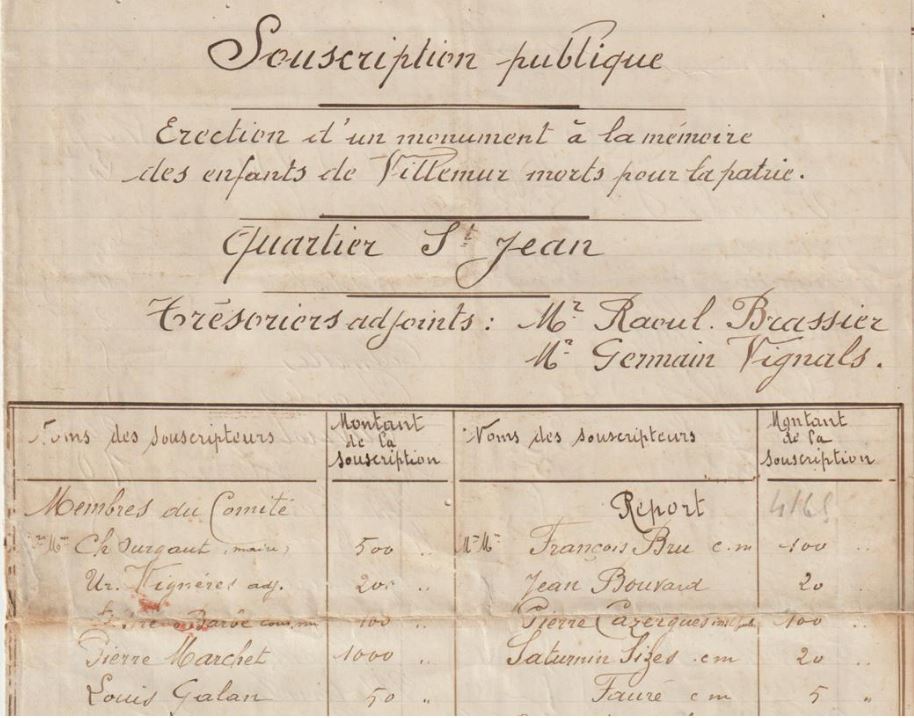 Souscription publique
Erection d'un monument à la mémoire
des enfants de Villemur morts pour la patrie.
Quartier St Jean
Trésoriers adjoints : Mr Raoul. Brassier
Mr Germain Vignals.
Noms des souscripteurs
Montant
de la
souscription
Noms des souscripteurs
Montant
de la
souscription
Membres du Comité
Report 4165
Ch Surgaut (maire) 500 "
Ur. Vignères adj. 200
Barbe 100 "
Pierre Marchet 1000 "
Louis Galan 50 "
François Bru c.m 100 "
Jean Bouvard 20
Pierre Cazergues 100 "
Saturnin Sizes c.m 20 "
Fauré c m 5 "